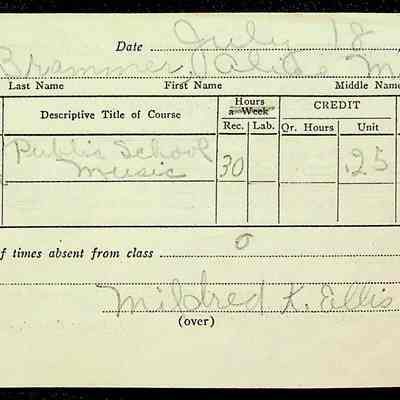 Date July 18
Brammer, Alice M
Last Name First Name Middle Name
Descriptive Title of Course Hours a Week CREDIT
Rec. Lab. Qr. Hours Unit
Public School Music 30 .25
f times absent from class 0
Mildred K. Ellis
(over)